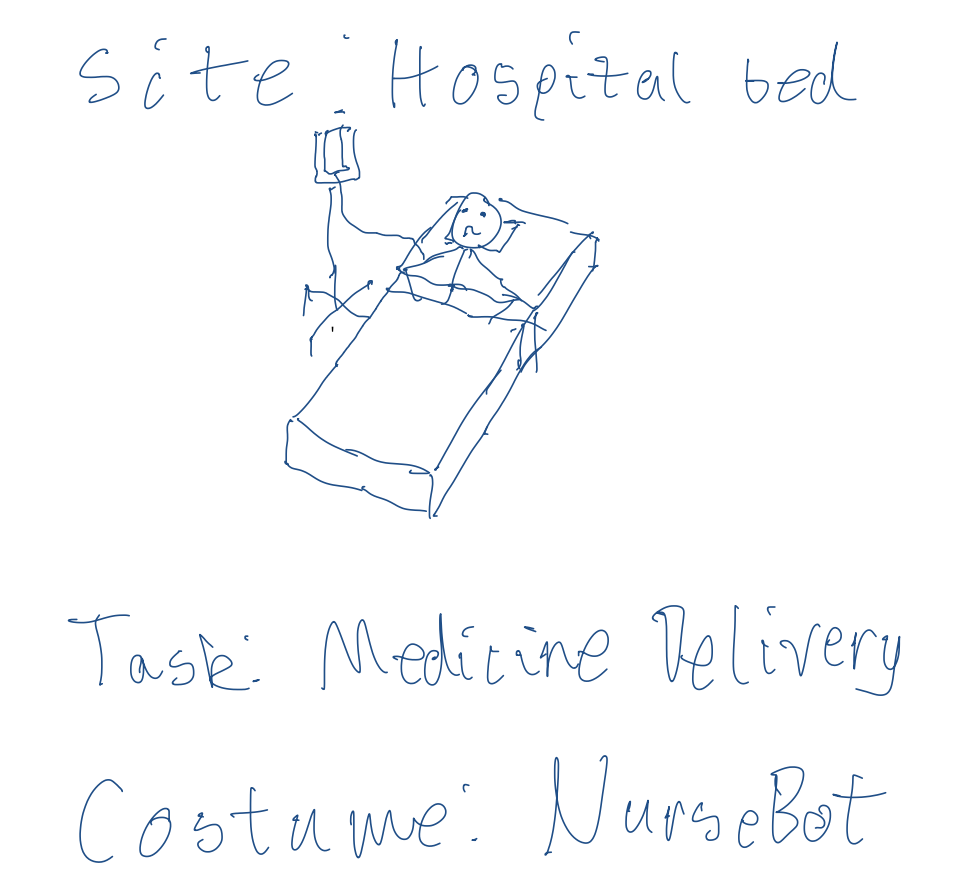 Site: Hospital bed
Task: Medicine Delivery
Costume: NurseBot